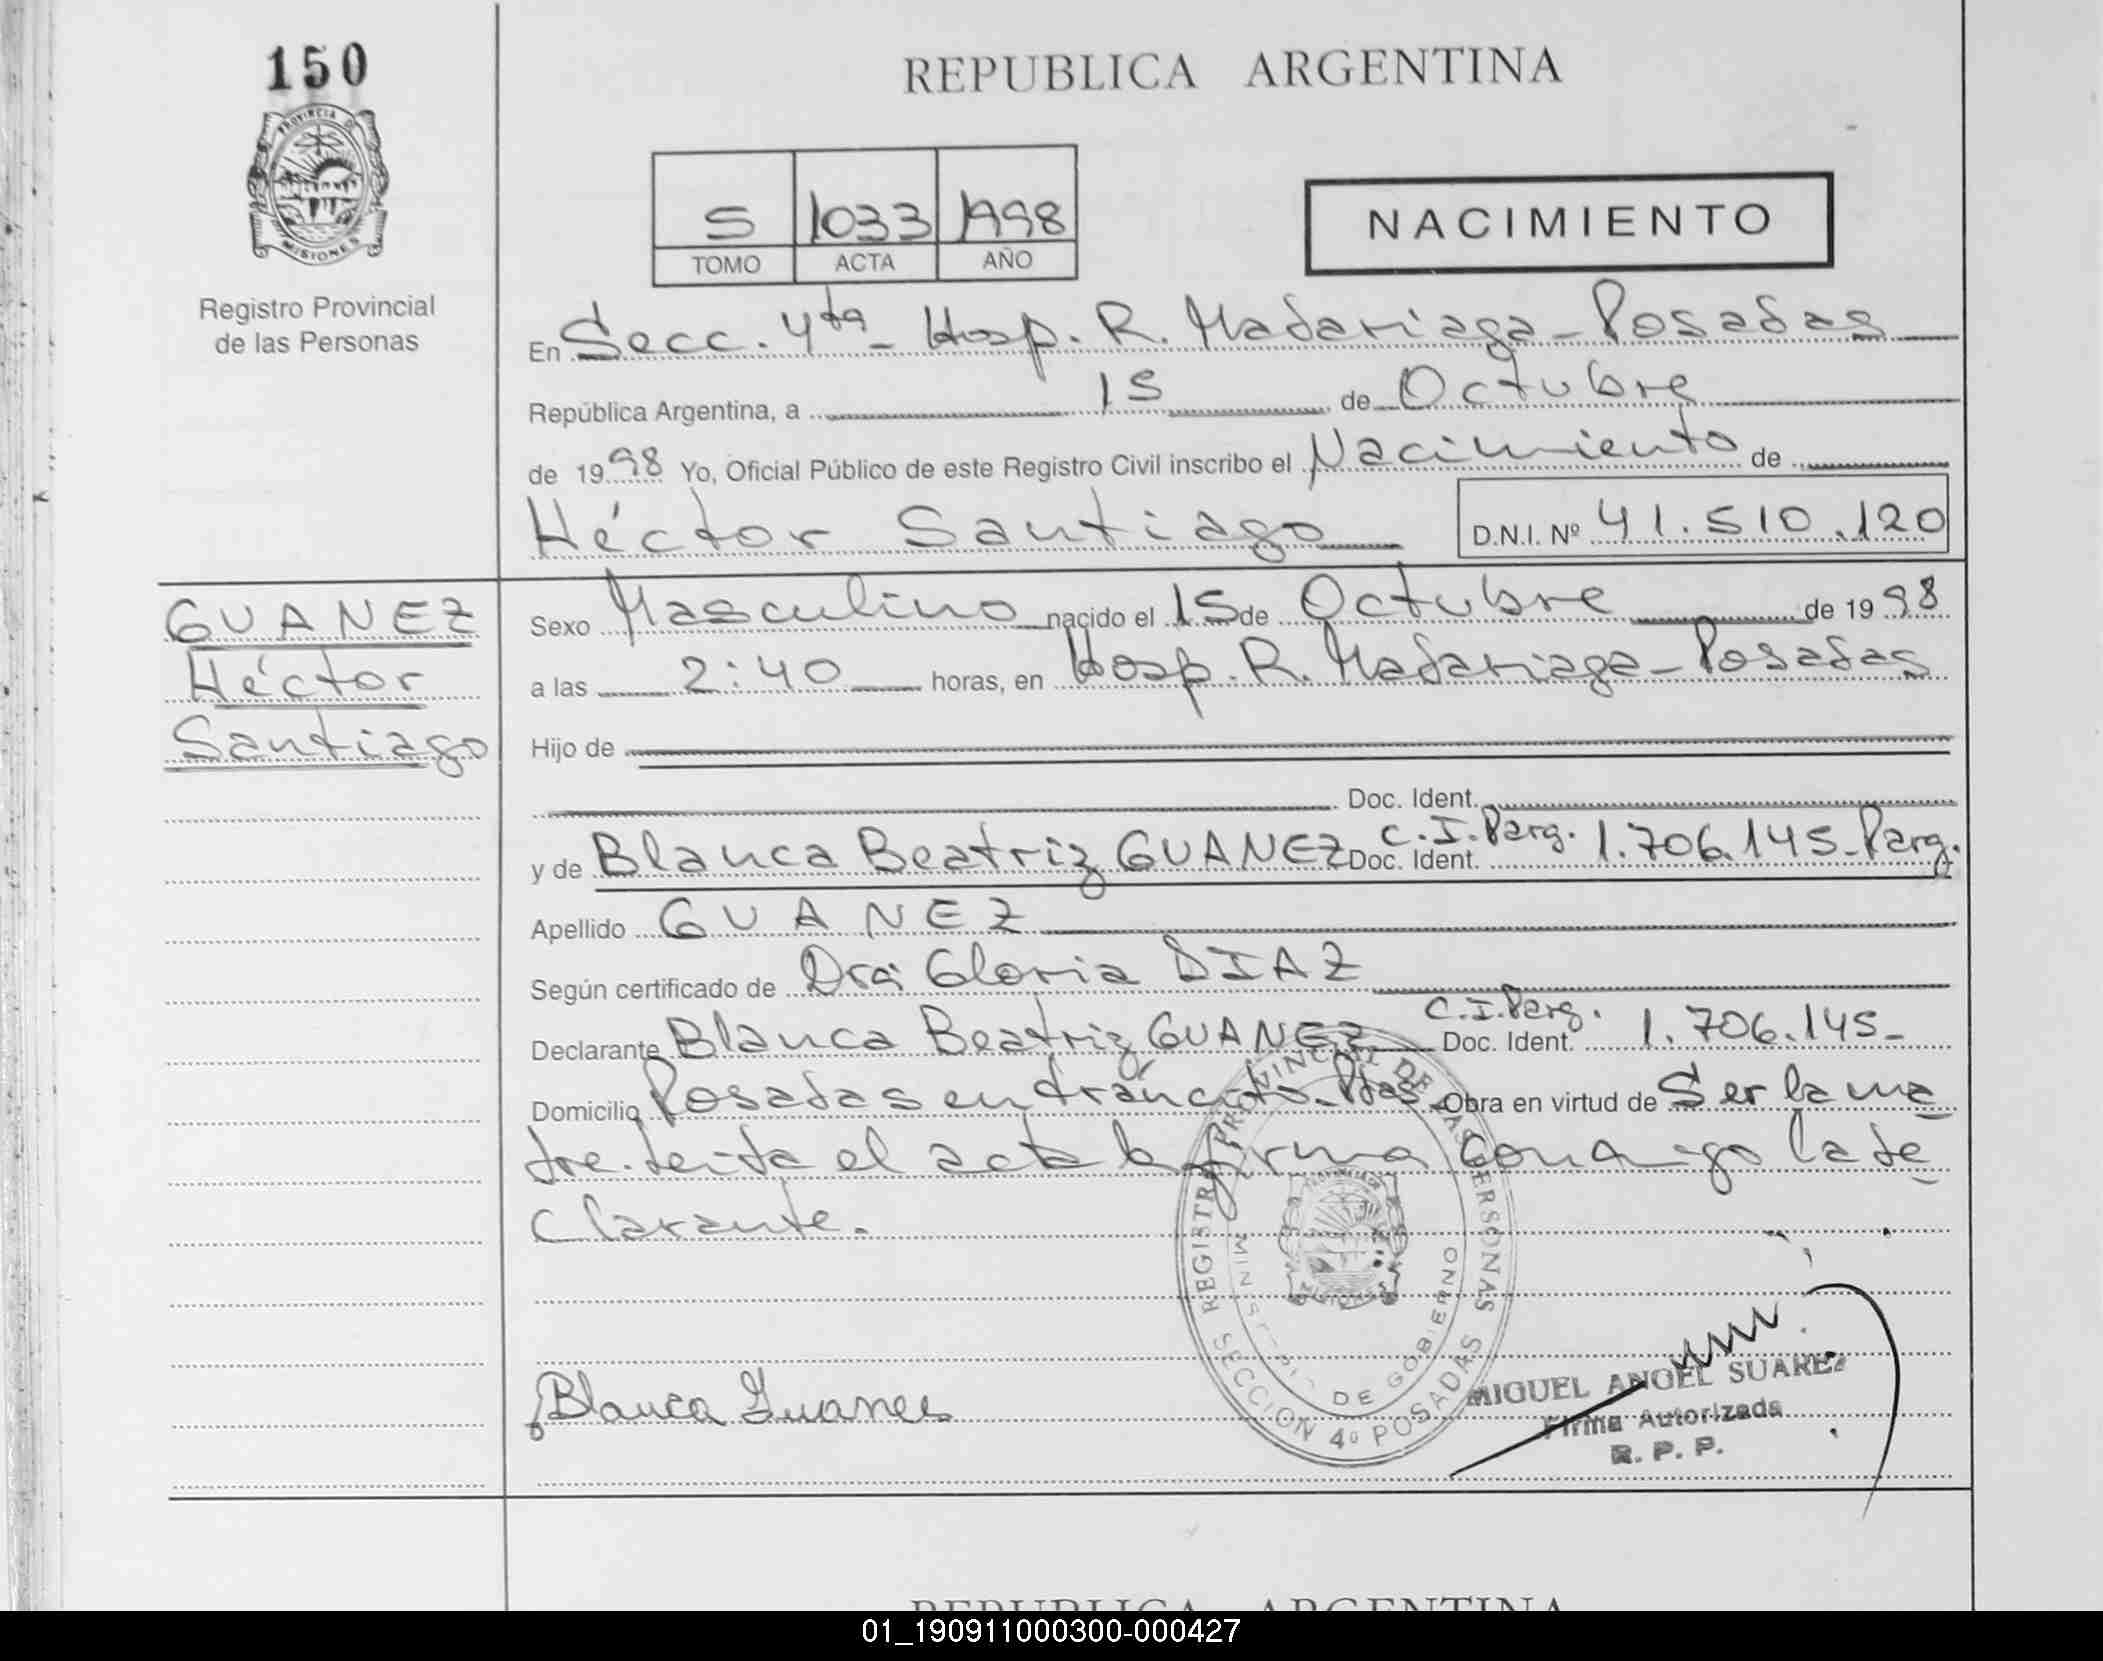 150
PROVINCIA DE
MISIONES
Registro Provincial
de las Personas
REPUBLICA ARGENTINA
S 1033 1998
TOMO ACTA AÑO
NACIMIENTO
En Secc. 4ta - Hosp. R. Madariaga - Posadas
República Argentina, a 15 de Octubre
de 1998 Yo, Oficial Público de este Registro Civil inscribo el Nacimiento de
Héctor Santiago D.N.I. Nº 41.510.120
GUANEZ
Héctor
Santiago
Sexo Masculino nacido el 15 de Octubre de 1998
a las 2:40 horas, en Hosp. R. Madariaga - Posadas
Hijo de
Doc. Ident.
y de Blanca Beatriz GUANEZ Doc. Ident. C.I. Parg. 1.706.145 - Parg.
Apellido GUANEZ
Según certificado de Dra. Gloria DIAZ
Declarante Blanca Beatriz GUANEZ Doc. Ident. C.I. Parg. 1.706.145 -
Domicilio Posadas en tráncito - Pdas - Obra en virtud de Ser la ma
dre. Leída el acta la firma conmigo la de
clarante.
REGISTRO PROVINCIAL DE LAS PERSONAS
MINISTERIO DE GOBIERNO
SECCION 4º POSADAS
Blanca Guanes
MIGUEL ANGEL SUAREZ
Firma Autorizada
R. P. P.
REPUBLICA ARGENTINA
01_190911000300-000427